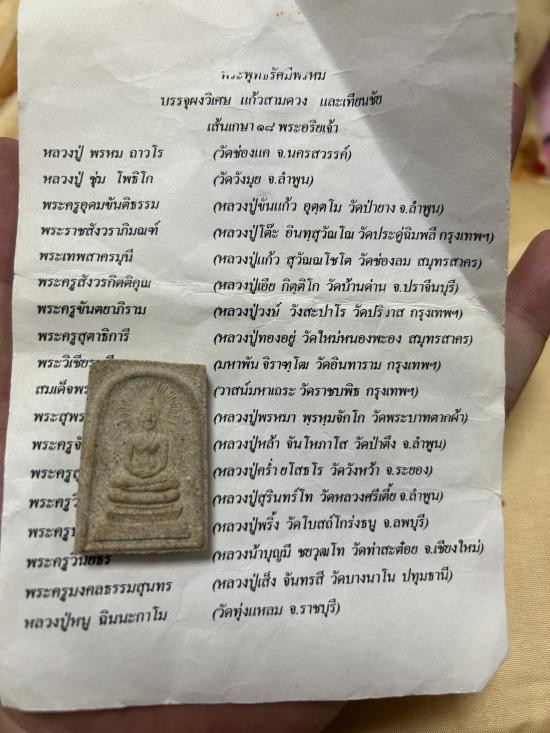 พระพุทธรัศมีพรหม
บรรจุผงวิเศษ แก้วสามดวง และเทียนชัย
เส้นเกษา ๑๘ พระอริยเจ้า
หลวงปู่ พรหม ถาวโร (วัดช่องแค จ.นครสวรรค์)
หลวงปู่ ชุ่ม โพธิโก (วัดวังมุย จ.ลำพูน)
พระครูอุดมขันติธรรม (หลวงปู่ขันแก้ว อุตฺตโม วัดป่ายาง จ.ลำพูน)
พระราชสังวราภิมณฑ์ (หลวงปู่โต๊ะ อินฺทสุวัณโณ วัดประดู่ฉิมพลี กรุงเทพฯ)
พระเทพสาครมุนี (หลวงปู่แก้ว สุวัณณโชโต วัดช่องลม สมุทรสาคร)
พระครูสังวรกิตติคุณ (หลวงปู่เอีย กิตฺติโก วัดบ้านด่าน จ.ปราจีนบุรี)
พระครูขันตยาภิราม (หลวงปู่วงษ์ วังสะปาโร วัดปริวาส กรุงเทพฯ)
พระครูสุตาธิการี (หลวงปู่ทองอยู่ วัดใหม่หนองพะอง สมุทรสาคร)
พระวิเชียร (มหาพัน จิราฑฺโฒ วัดอินทาราม กรุงเทพฯ)
สมเด็จพระ (วาสน์มหาเถระ วัดราชบพิธ กรุงเทพฯ)
พระสุพร (หลวงปู่พรหมา พฺรหฺมจักโก วัดพระบาทตากผ้า)
พระครู (หลวงปู่หล้า จันโทภาโส วัดป่าตึง จ.ลำพูน)
พระครู (หลวงปู่คร่ำ ยโสธโร วัดวังหว้า จ.ระยอง)
พระครู (หลวงปู่สุรินทร์โท วัดหลวงศรีเตี้ย จ.ลำพูน)
พระครู (หลวงปู่พริ้ง วัดโบสถ์โก่งธนู จ.ลพบุรี)
พระครูวินัยธร (หลวงน้าบุญมี ชยวุฒโท วัดท่าสะต๋อย จ.เชียงใหม่)
พระครูมงคลธรรมสุนทร (หลวงปู่เส็ง จันทรสี วัดบางนาโน ปทุมธานี)
หลวงปู่หนู ฉินนะกาโม (วัดทุ่งแหลม จ.ราชบุรี)